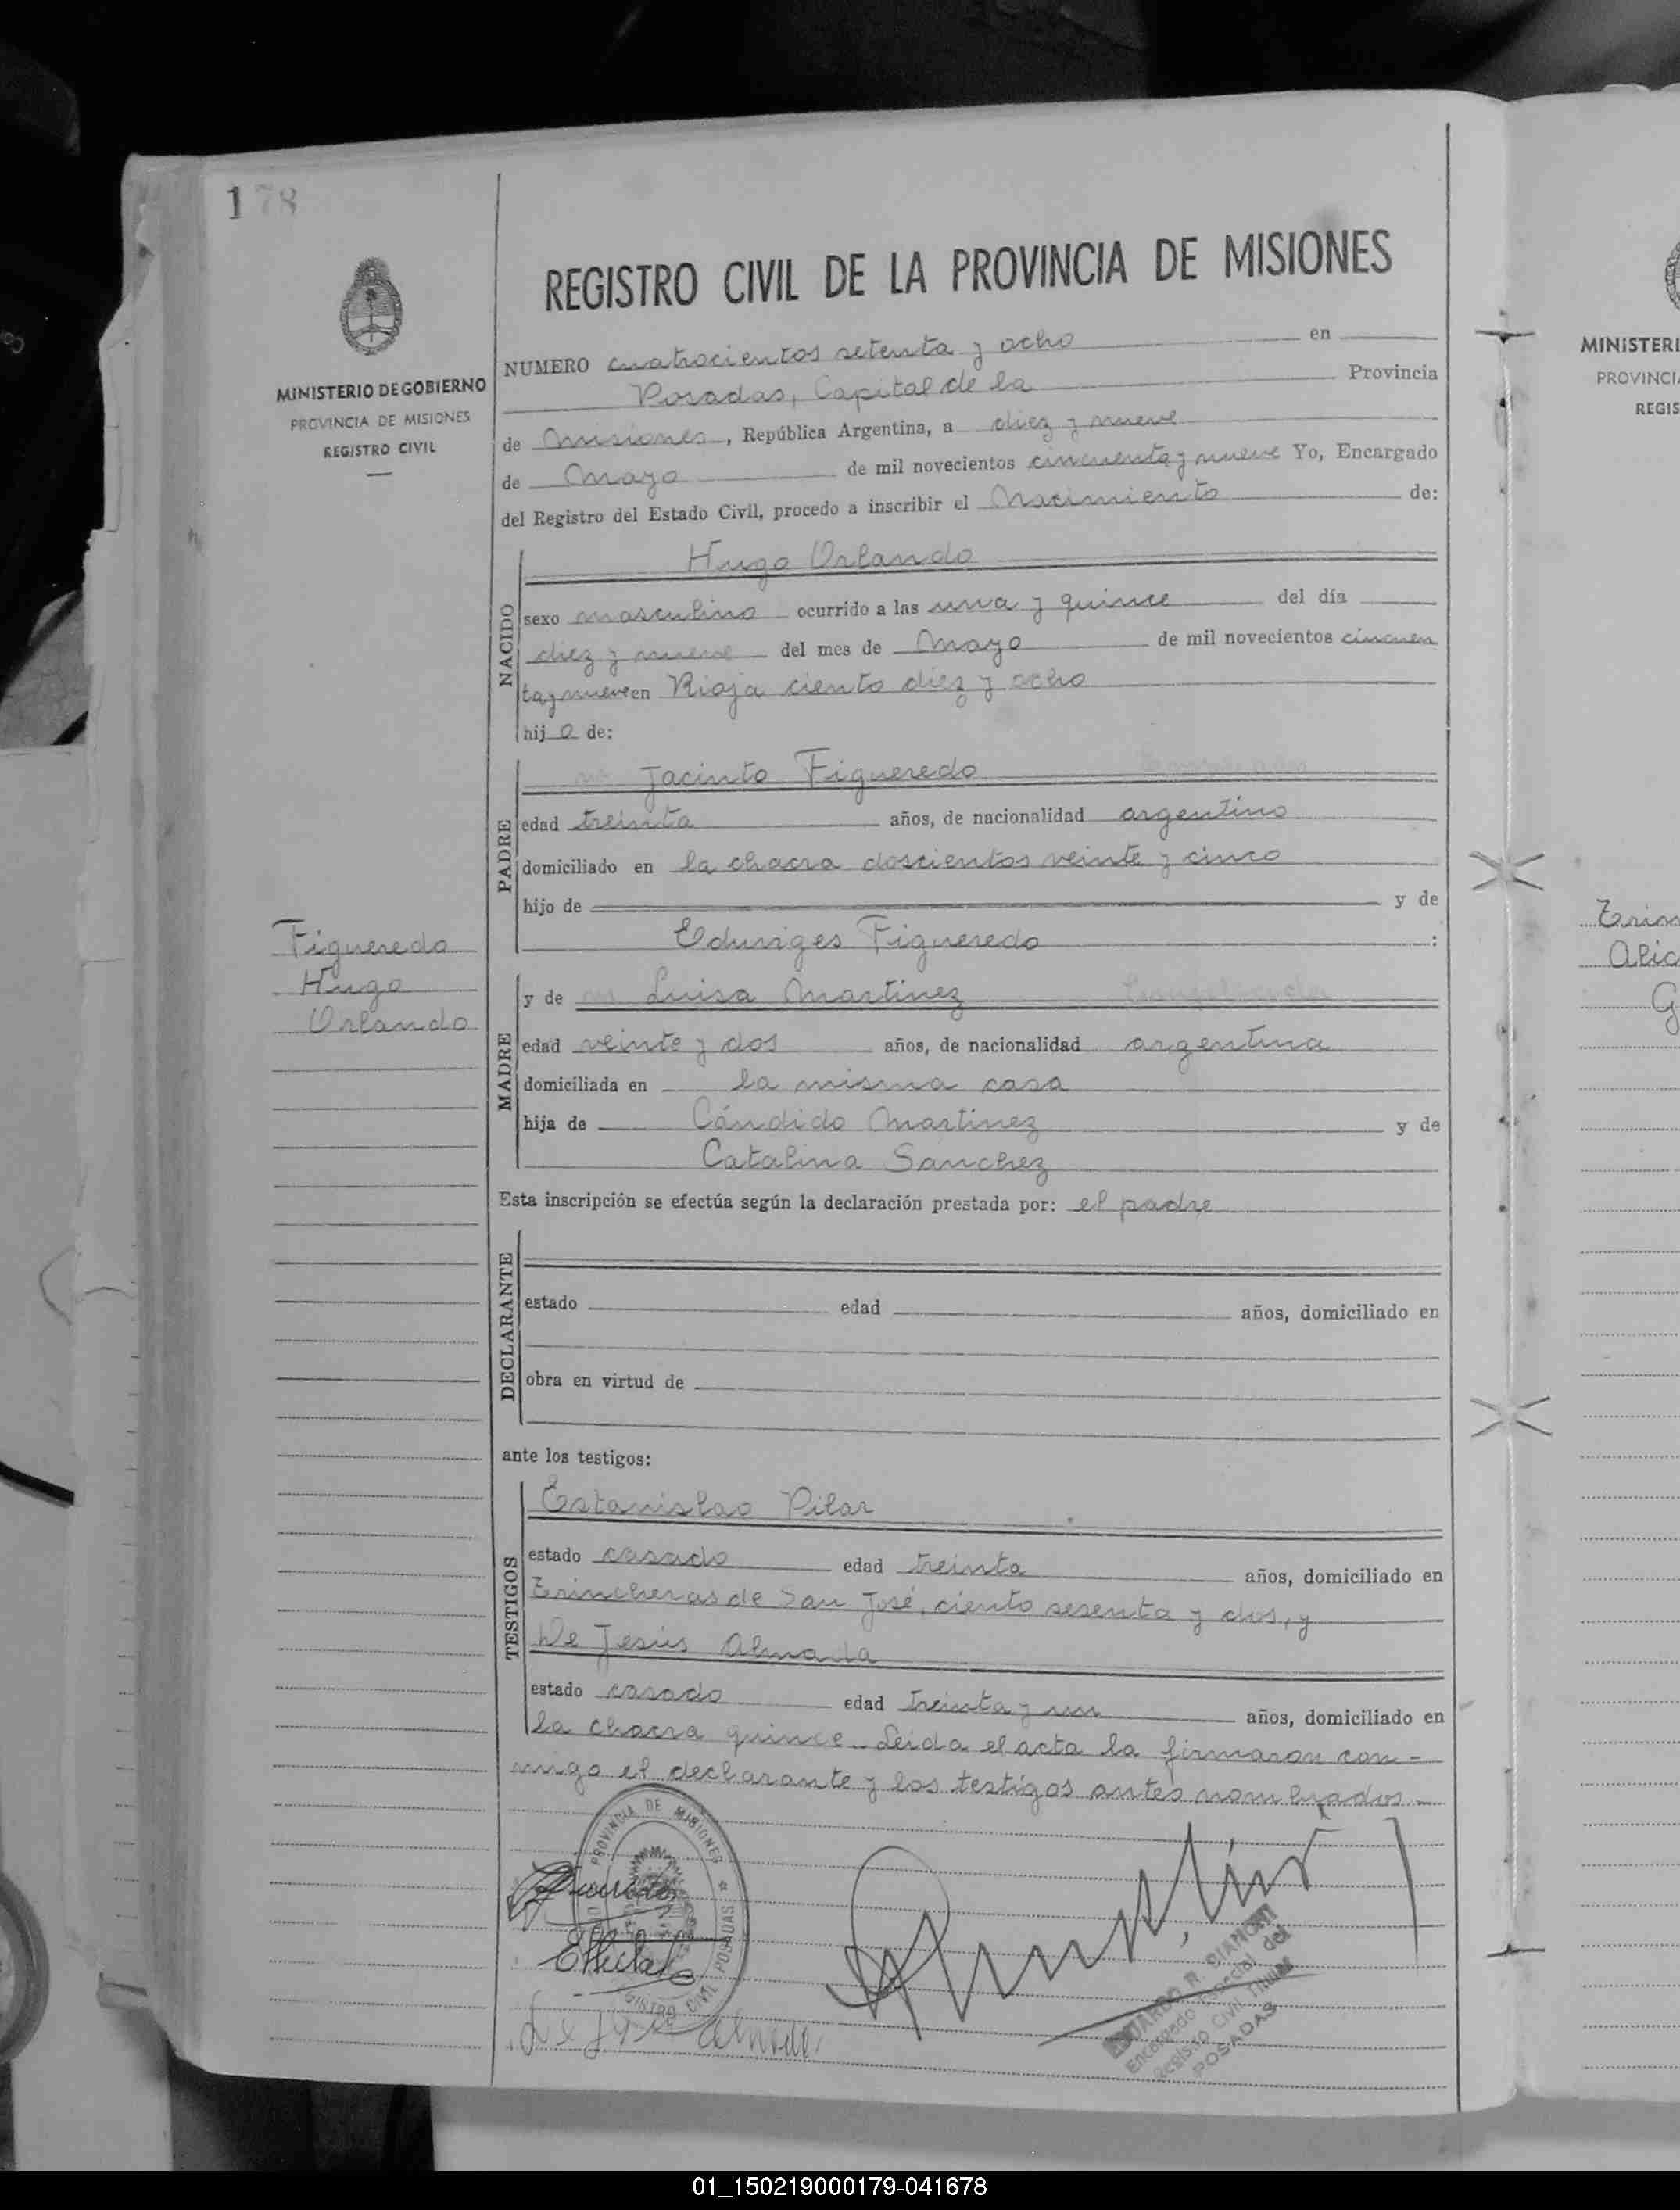 178
MINISTERIO DE GOBIERNO
PROVINCIA DE MISIONES
REGISTRO CIVIL
REGISTRO CIVIL DE LA PROVINCIA DE MISIONES
NUMERO cuatrocientos setenta y ocho en
Posadas, Capital de la Provincia
de Misiones, República Argentina, a diez y nueve
de Mayo de mil novecientos cincuenta y nueve Yo, Encargado
del Registro del Estado Civil, procedo a inscribir el Nacimiento de:
NACIDO
Hugo Orlando
sexo masculino ocurrido a las una y quince del día
diez y nueve del mes de Mayo de mil novecientos cincuen
ta y nueve en Rioja ciento diez y ocho
hij o de:
PADRE
Jacinto Figueredo
edad treinta años, de nacionalidad argentino
domiciliado en la chacra doscientos veinte y cinco
hijo de y de
Eduviges Figueredo :
Figueredo
Hugo
Orlando
MADRE
y de Luisa Martinez
edad veinte y dos años, de nacionalidad argentina
domiciliada en la misma casa
hija de Cándido Martinez y de
Catalina Sanchez
Esta inscripción se efectúa según la declaración prestada por: el padre
DECLARANTE
estado edad años, domiciliado en
obra en virtud de
ante los testigos:
TESTIGOS
Estanislao Pilar
estado casado edad treinta años, domiciliado en
Trincheras de San José, ciento sesenta y dos, y
De Jesús Almada
estado casado edad treinta y un años, domiciliado en
la chacra quince. Leída el acta la firmaron con-
migo el declarante y los testigos antes nombrados.
PROVINCIA DE MISIONES
REGISTRO CIVIL POSADAS
Encargado Especial del
Registro Civil Titular
POSADAS
MINISTERI
PROVINCI
REGIS
Alic
G
01_150219000179-041678